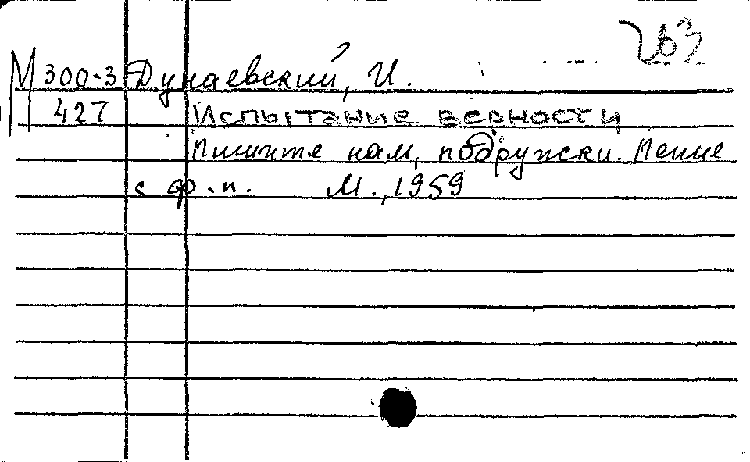 263
М 300-3 Дунаевский, И.
427 Испытание верности
Пишите нам, подружки. Пение
с ф.-п. М., 1959